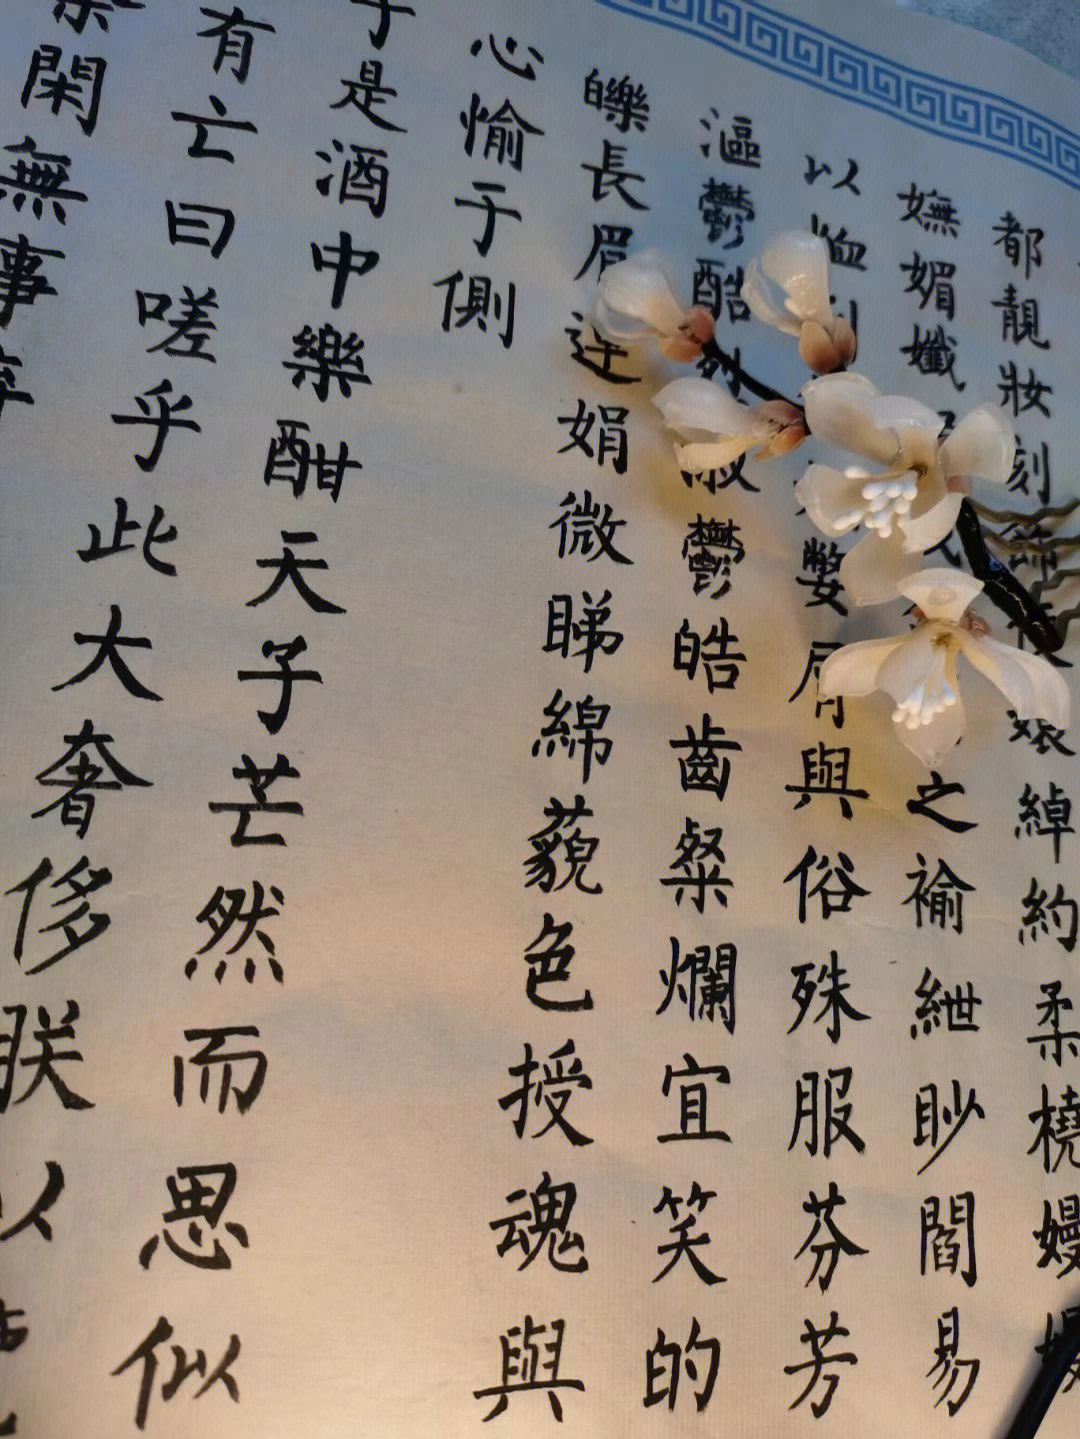 都靚妝刻飾便嬛綽約柔橈嫚嫚
嫵媚孅之褕紲眇閻易
以恤削嫳屑與俗殊服芬芳
漚鬱酷烈淑鬱皓齒粲爛宜笑的
皪長眉連娟微睇綿藐色授魂與
心愉于側
于是酒中樂酣天子芒然而思似
有亡曰嗟乎此大奢侈
朕以
閑無事棄